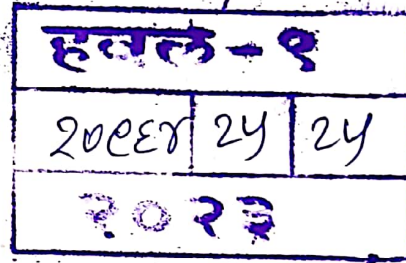 हवल-९
२०९६४ २५ २५
२०२३